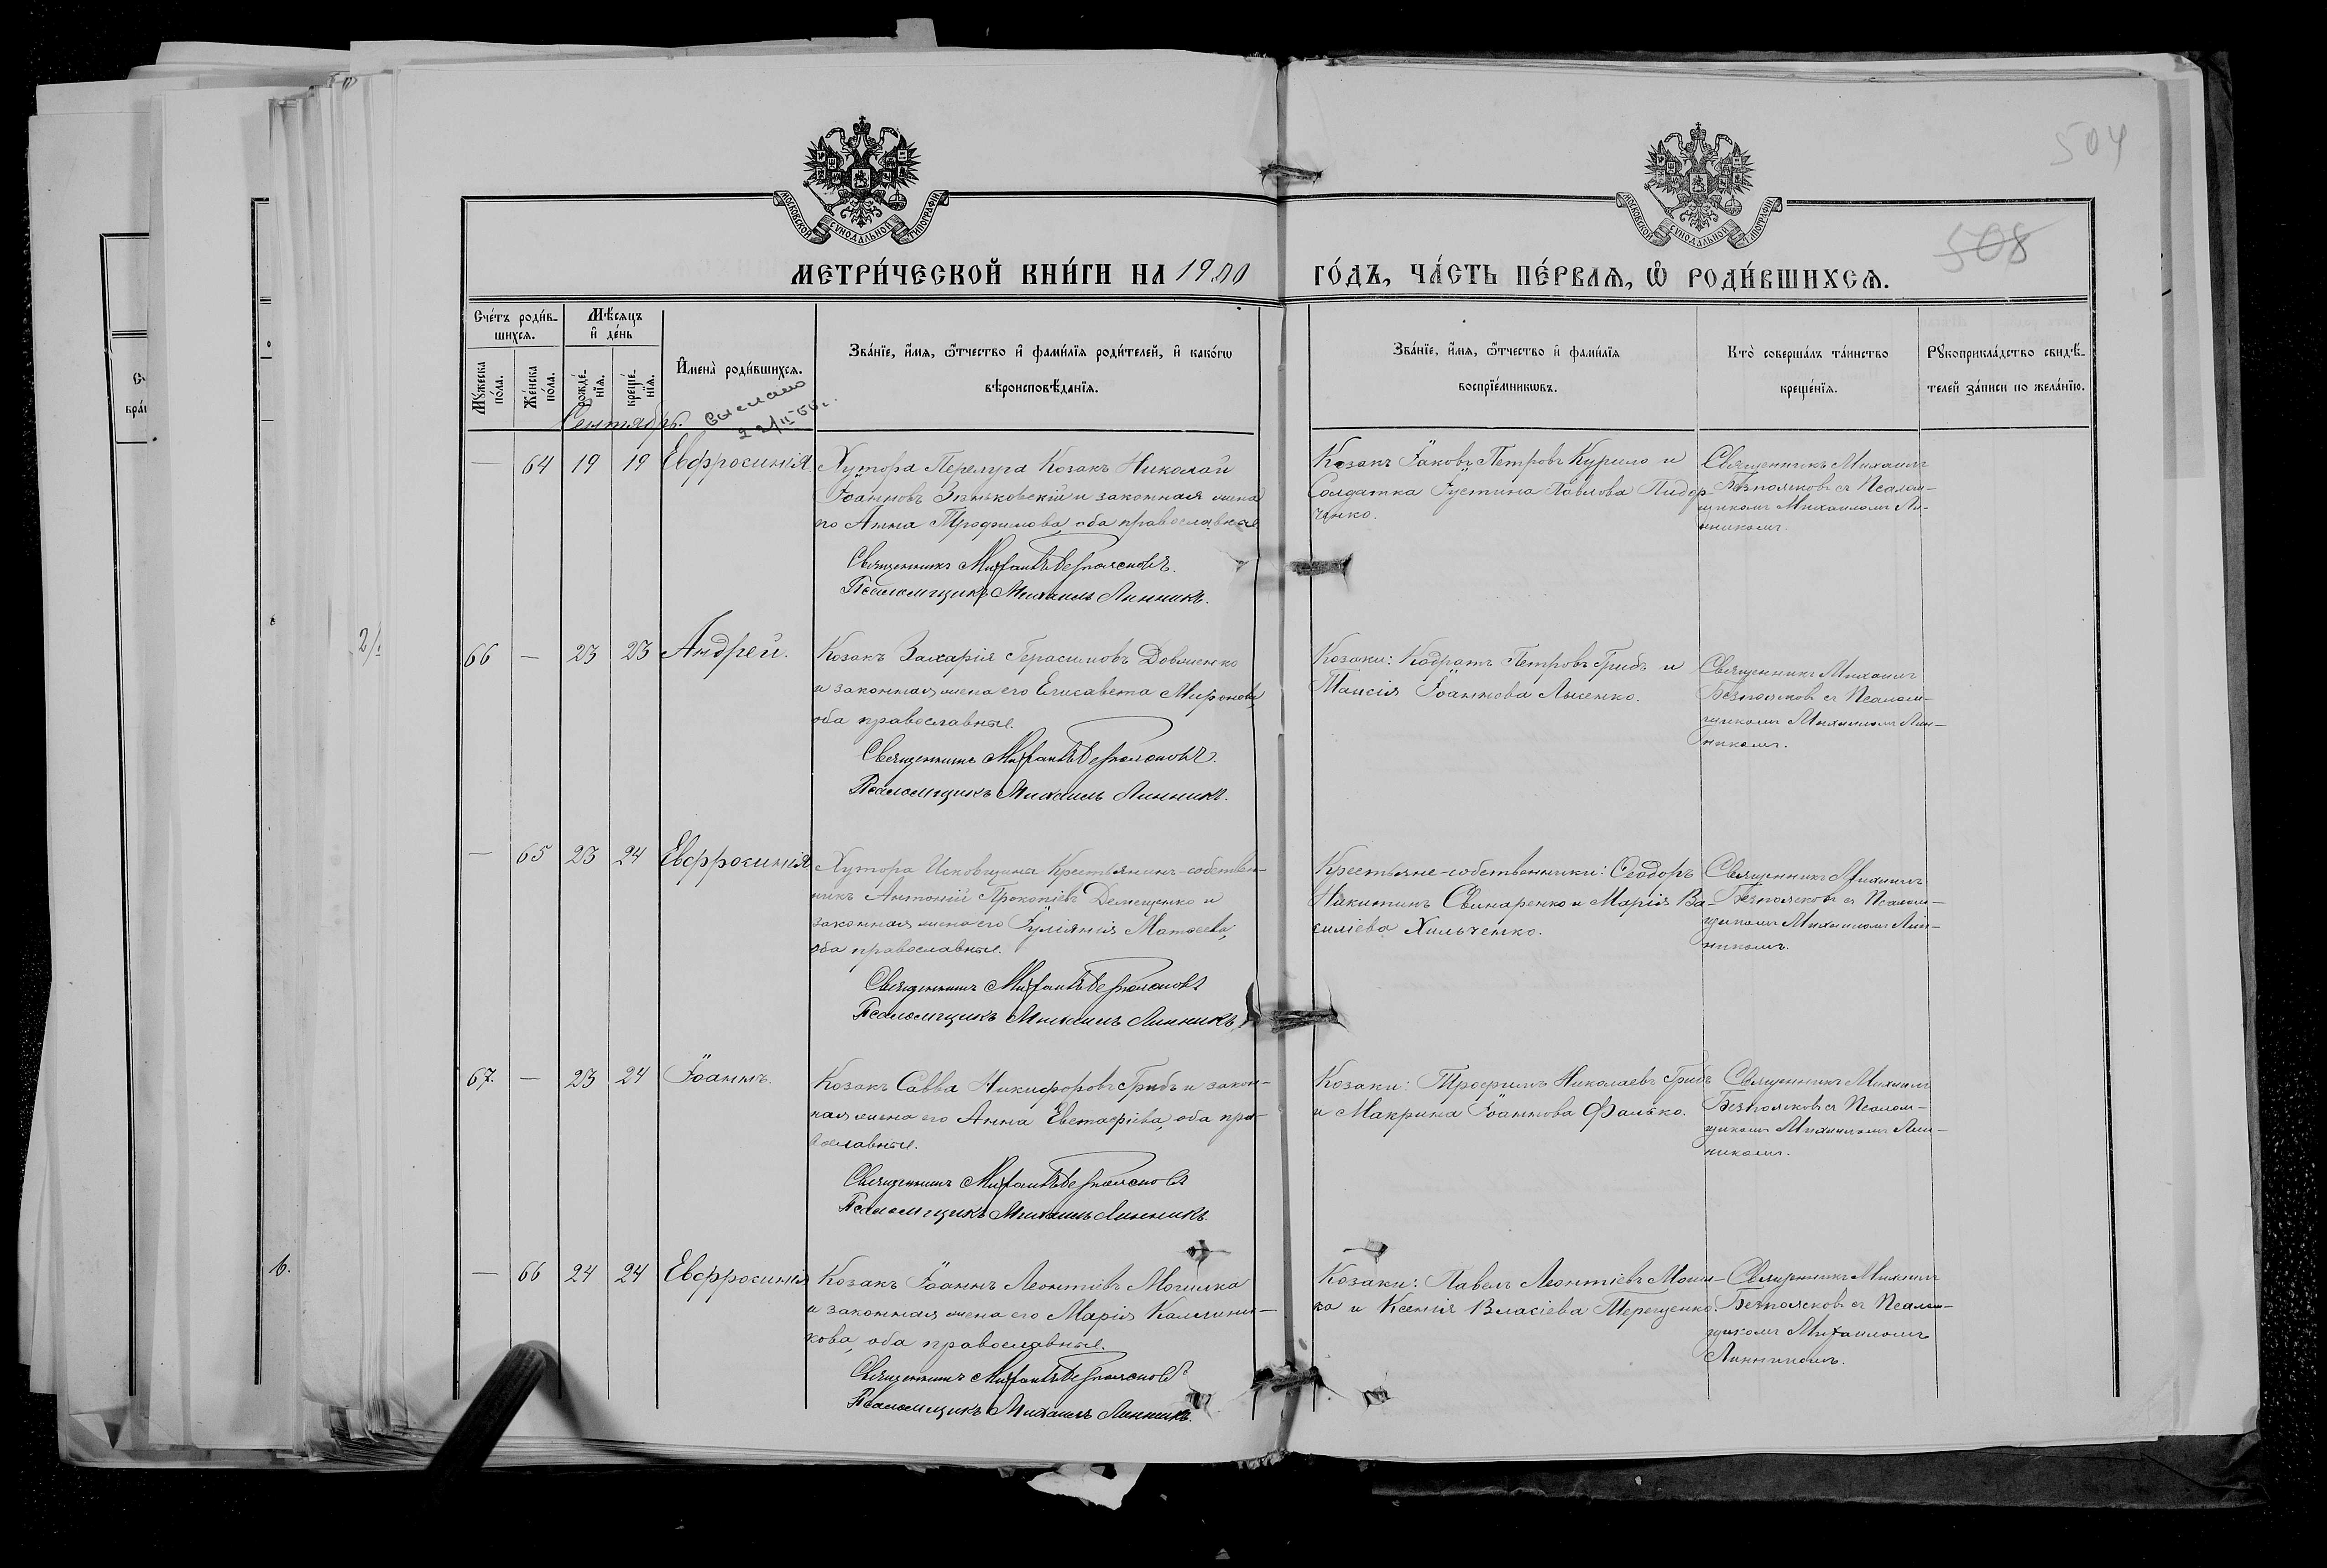 504
508
МОСКОВСКОЙ СУНОДАЛЬНОЙ ТИПОГРАФІИ
МОСКОВСКОЙ СУНОДАЛЬНОЙ ТИПОГРАФІИ
МЕТРИ́ЧЕСКОЙ КНИ́ГИ НА 1900 ГО́ДЪ, ЧА́СТЬ ПЕ́РВАЯ, Ѡ РОДИ́ВШИХСЯ.
Сче́тъ роди́в-
шихся.
Мѣсяцъ
и де́нь
Мꙋжеска по́ла.
Же́нска по́ла.
рожде́-
нїя.
креще́-
нїя.
Имена̀ роди́вшихся.
Зва́нїе, и́мя, ѻ́тчество и фами́лїя роди́телей, и како́гѡ
вѣроисповѣ́данїя.
Зва́нїе, и́мя, ѻ́тчество и фами́лїя
воспрїе́мникѡвъ.
Кто̀ соверша́лъ та́инство
креще́нїя.
Рꙋкоприкла́дство свидѣ́-
телей за́писи по жела́нїю.
Сентябрь.
Выслано
— 64 19 19 Евфросинія.
Хутора Перелуга Козакъ Николай
Іоанновъ Зѣньковскій и законная жена
го Анна Трофимова, оба православные
Священникъ Михаилъ Безпоясковъ.
Псаломщикъ Михаилъ Линникъ.
Козакъ Іаковъ Петровъ Курило и
Солдатка Іустина Павлова Пидор-
ченко.
Священникъ Михаилъ
Безпоясковъ съ Псалом-
щикомъ Михаиломъ Ли-
нникомъ.
66 — 23 23 Андрей.
Козакъ Захарія Герасимовъ Довженко
и законная жена его Елисавета Миронова,
оба православные.
Священникъ Михаилъ Безпоясковъ.
Псаломщикъ Михаилъ Линникъ.
Козаки: Кодратъ Петровъ Грибъ и
Таисія Іоаннова Лысенко.
Священникъ Михаилъ
Безпоясковъ съ Псалом-
щикомъ Михаиломъ Лин-
никомъ.
— 65 23 24 Евфросинія
Хутора Исковщина Крестьянинъ-собствен-
никъ Антоній Прокопіевъ Демещенко и
законная жена его Іуліанія Матѳеева,
оба православные.
Священникъ Михаилъ Безпоясковъ
Псаломщикъ Михаилъ Линникъ.
Крестьяне-собственники: Ѳеодоръ
Никитинъ Свинаренко и Марія Ва-
силіева Хильченко.
Священникъ Михаилъ
Безпоясковъ съ Псалом-
щикомъ Михаиломъ Лин-
никомъ.
67. — 23 24 Іоаннъ.
Козакъ Савва Никифоровъ Грибъ и закон-
ная жена его Анна Евстафіева, оба пра-
вославные.
Священникъ Михаилъ Безпоясковъ
Псаломщикъ Михаилъ Линникъ.
Козаки: Трофимъ Николаевъ Грибъ
и Макрина Іоаннова Фалько.
Священникъ Михаилъ
Безпоясковъ съ Псалом-
щикомъ Михаиломъ Лин-
никомъ.
— 66 24 24 Евфросинія
Козакъ Іоаннъ Леонтіевъ Могилка
и законная жена его Марія Каллини-
кова, оба православные.
Священникъ Михаилъ Безпоясковъ
Псаломщикъ Михаилъ Линникъ.
Козаки: Павелъ Леонтіевъ
ка и Ксенія Власіева Терещенко.
Священникъ Михаилъ
Безпоясковъ съ Псалом-
щикомъ Михаиломъ
Линникомъ.